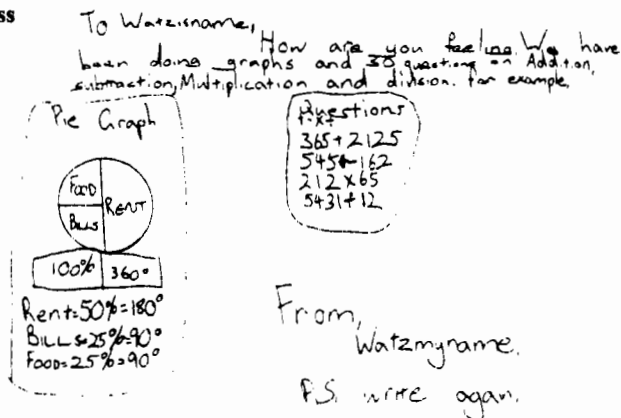 ss
To Watzisname,
How are you feeling. We have
been doing graphs and 30 questions on Addition,
subtraction, Multiplication and division. for example,
Pie Graph
FOOD
RENT
BILLS
100% 360°
Rent=50%=180°
BILLS=25%=90°
FOOD=25%=90°
Questions
365+2125
545-162
212x65
5431+12
From,
Watzmyname.
P.S. write agan.